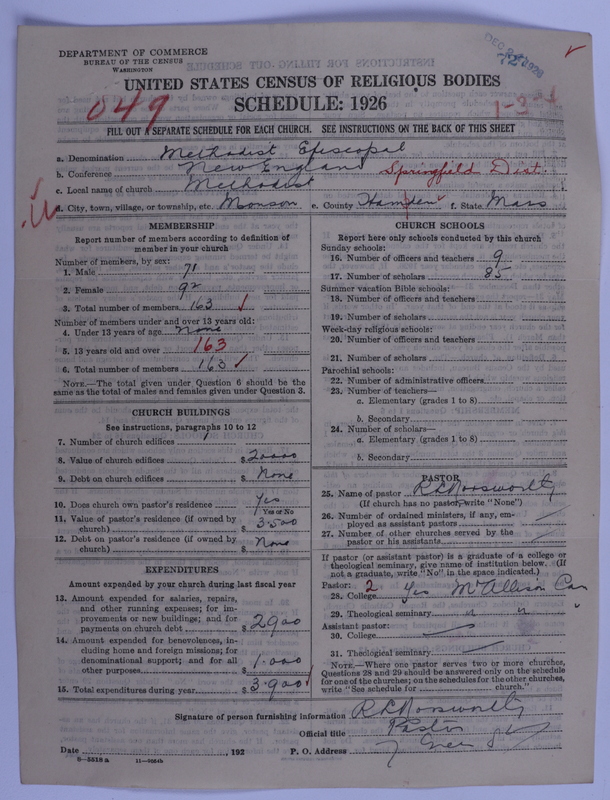 DEPARTMENT OF COMMERCE
BUREAU OF THE CENSUS
WASHINGTON
UNITED STATES CENSUS OF RELIGIOUS BODIES
SCHEDULE: 1926
049
1-3-1
FILL OUT A SEPARATE SCHEDULE FOR EACH CHURCH. SEE INSTRUCTIONS ON THE BACK OF THIS SHEET
a. Denomination Methodist Episcopal
b. Conference New England Springfield Dist.
c. Local name of church Methodist
d. City, town, village, or township, etc. Monson e. County Hampden f. State Mass
MEMBERSHIP
Report number of members according to definition of member in your church
Number of members, by sex:
1. Male 71
2. Female 92
3. Total number of members 163
Number of members under and over 13 years old:
4. Under 13 years of age None
5. 13 years old and over 163
6. Total number of members 163
NOTE.—The total given under Question 6 should be the
same as the total of males and females given under Question 3.
CHURCH BUILDINGS
See instructions, paragraphs 10 to 12
7. Number of church edifices 1
8. Value of church edifices $ 20000
9. Debt on church edifices $ None
10. Does church own pastor's residence Yes
Yes or No
11. Value of pastor's residence (if owned by
church) $ 3500
12. Debt on pastor's residence (if owned by
church) $ None
EXPENDITURES
Amount expended by your church during last fiscal year
13. Amount expended for salaries, repairs,
and other running expenses; for im-
provements or new buildings; and for
payments on church debt $ 2900
14. Amount expended for benevolences, in-
cluding home and foreign missions; for
denominational support; and for all
other purposes $ 1000
15. Total expenditures during year $ 3900
CHURCH SCHOOLS
Report here only schools conducted by this church
Sunday schools:
16. Number of officers and teachers 9
17. Number of scholars 85
Summer vacation Bible schools:
18. Number of officers and teachers
19. Number of scholars
Week-day religious schools:
20. Number of officers and teachers
21. Number of scholars
Parochial schools:
22. Number of administrative officers
23. Number of teachers—
a. Elementary (grades 1 to 8)
b. Secondary
24. Number of scholars—
a. Elementary (grades 1 to 8)
b. Secondary
PASTOR
25. Name of pastor
(If church has no pastor, write "None")
26. Number of ordained ministers, if any, em-
ployed as assistant pastors
27. Number of other churches served by the
pastor or his assistant
If pastor (or assistant pastor) is a graduate of a college or
theological seminary, give name of institution below. (If
not a graduate, write "No" in the space indicated.)
Pastor: 2
28. College Yes Mt Allison Can
29. Theological seminary " "
Assistant pastor:
30. College
31. Theological seminary
NOTE.—Where one pastor serves two or more churches,
Questions 28 and 29 should be answered only on the schedule
for one of the churches; on the schedules for the other churches,
write "See schedule for church."
Signature of person furnishing information
Official title Pastor
Date , 192 P. O. Address
8—3518a 11—9684b